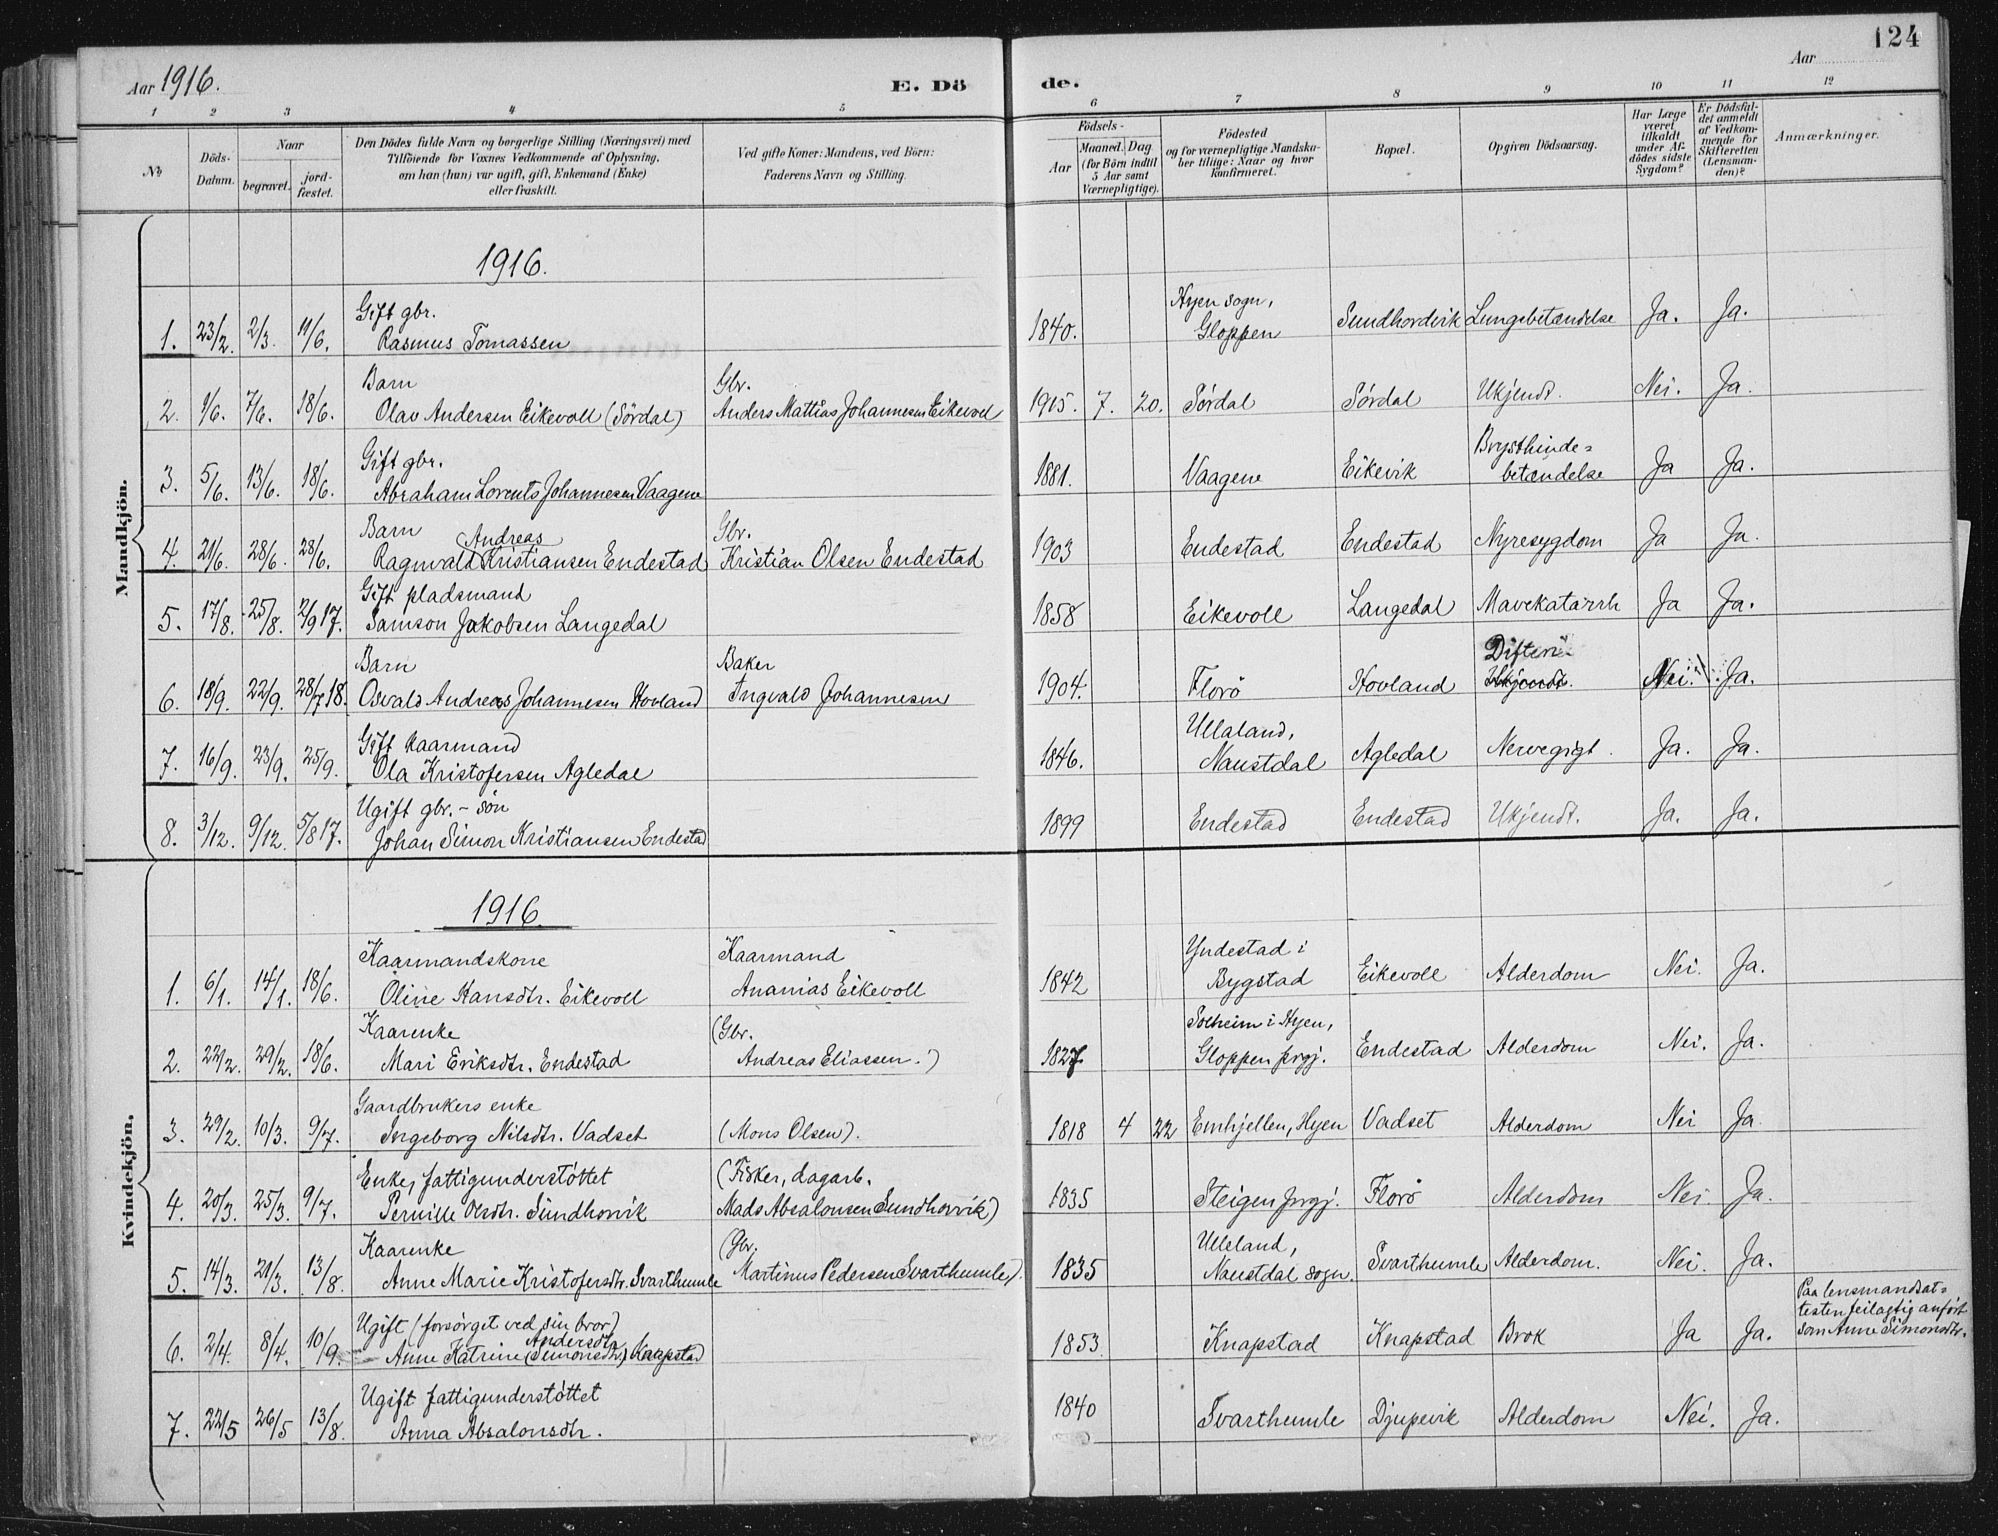 124
Aar 1916.
E. Dö
de.
Aar
1 2 3 4 5 6 7 8 9 10 11 12
No
Döds-
Datum.
Naar
begravet.
jord-
fæstet.
Den Dödes fulde Navn og borgerlige Stilling (Næringsvei) med
Tilföiende for Voxnes Vedkommende af Oplysning,
om han (hun) var ugift, gift, Enkemand (Enke)
eller fraskilt.
Ved gifte Koner: Mandens, ved Börn:
Faderens Navn og Stilling.
Födsels-
Aar
Maaned. Dag
(for Börn indtil
5 Aar samt
Værnepligtige).
Födested
og for værnepligtige Mandska-
ber tillige: Naar og hvor
konfirmeret.
Bopæl.
Opgiven Dödsaarsag.
Har Læge
været
tilkaldt
under Af-
dödes sidste
Sygdom?
Er Dödsfal-
det anmeldt
af Vedkom-
mende for
Skifteretten
(Lensman-
den)?
Anmærkninger.
Mandkjön.
1916.
Gift gbr.
1. 23/2. 2/3. 11/6. Rasmus Tomassen 1840. Hyen sogn, Gloppen Sundhordvik Lungebetændelse Ja. Ja.
Barn Gbr.
2. 1/6. 7/6. 18/6. Olav Andersen Eikevoll (Sördal) Anders Mattias Johannesen Eikevoll 1915. 7. 20. Sördal Sördal Ukjendt. Nei. Ja.
Gift gbr. Brysthinde=
3. 5/6. 13/6. 18/6. Abraham Lorents Johannesen Vaagene 1881. Vaagene Eikevik betændelse Ja Ja.
Barn Andreas Gbr.
4. 21/6. 28/6. 28/6. Ragnvald Kristiansen Endestad Kristian Olsen Endestad 1903 Endestad Endestad Nyresygdom Ja Ja.
Gift pladsmand
5. 17/8. 25/8. 2/9 17. Samson Jakobsen Langedal 1858 Eikevoll Langedal Mavekatarrh Ja Ja.
Barn Baker Difteri
6. 18/9. 22/9. 28/7 18. Osvald Andreas Johannesen Hovland Ingvald Johannesen 1904. Florö Hovland Ukjendt. Nei. Ja.
Gift Kaarmand Ullaland,
7. 16/9. 23/9. 25/9. Ola Kristofersen Agledal 1846. Naustdal Agledal Nervegigt. Ja. Ja.
Ugift gbr.- sön
8. 3/12. 9/12. 5/8 17. Johan Simon Kristiansen Endestad 1899 Endestad Endestad Ukjendt. Ja. Ja.
Kvindekjön.
1916.
Kaarmandskone Kaarmand Yndestad i
1. 6/1. 14/1. 18/6. Oline Hansdtr. Eikevoll Ananias Eikevoll 1842 Bygstad Eikevoll Alderdom Nei. Ja.
Kaarenke (Gbr. Solheim i Hyen,
2. 22/2. 29/2. 18/6. Mari Eriksdtr. Endestad Andreas Eliassen.) 1827 Gloppen prgj. Endestad Alderdom Nei. Ja.
Gaardbrukers enke
3. 29/2. 10/3. 9/7. Ingeborg Nilsdtr. Vadset (Mons Olsen). 1818 4 22 Emhjellen, Hyen Vadset Alderdom Nei Ja.
Enke, fattigunderstöttet (Fisker, dagarb.
4. 20/3. 25/3. 9/7. Pernille Olsdtr. Sundhorvik Mads Absalonsen Sundhorvik) 1835 Steigen prgj. Florö Alderdom Nei. Ja.
Kaarenke (Gbr. Ulleland,
5. 14/3. 21/3. 13/8. Anne Marie Kristofersdtr. Svarthumle Martinus Pedersen Svarthumle). 1835 Naustdal sogn. Svarthumle Alderdom. Nei. Ja.
Ugift (forsörget ved sin bror) Paa lensmandsat=
Andersdtr. testen feilagtig anfört
6. 2/4. 8/4. 10/9. Anne Katrine (Simonsdtr.) Knapstad 1853. Knapstad Knapstad Brok Ja Ja. som Anne Simonsdtr.
Ugift fattigunderstöttet
7. 22/5 26/5 13/8. Anna Absalonsdtr. 1840 Svarthumle Djupevik Alderdom Nei. Ja.